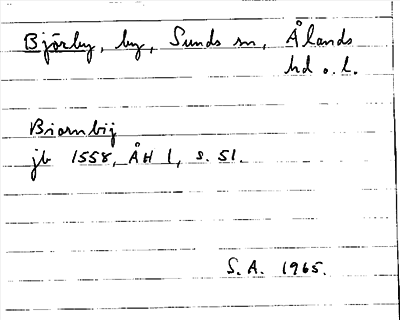 Björby, by, Sunds sn, Ålands
hd o. l.
Biornbij
jb 1558, ÅH 1, s. 51.
S. A. 1965.